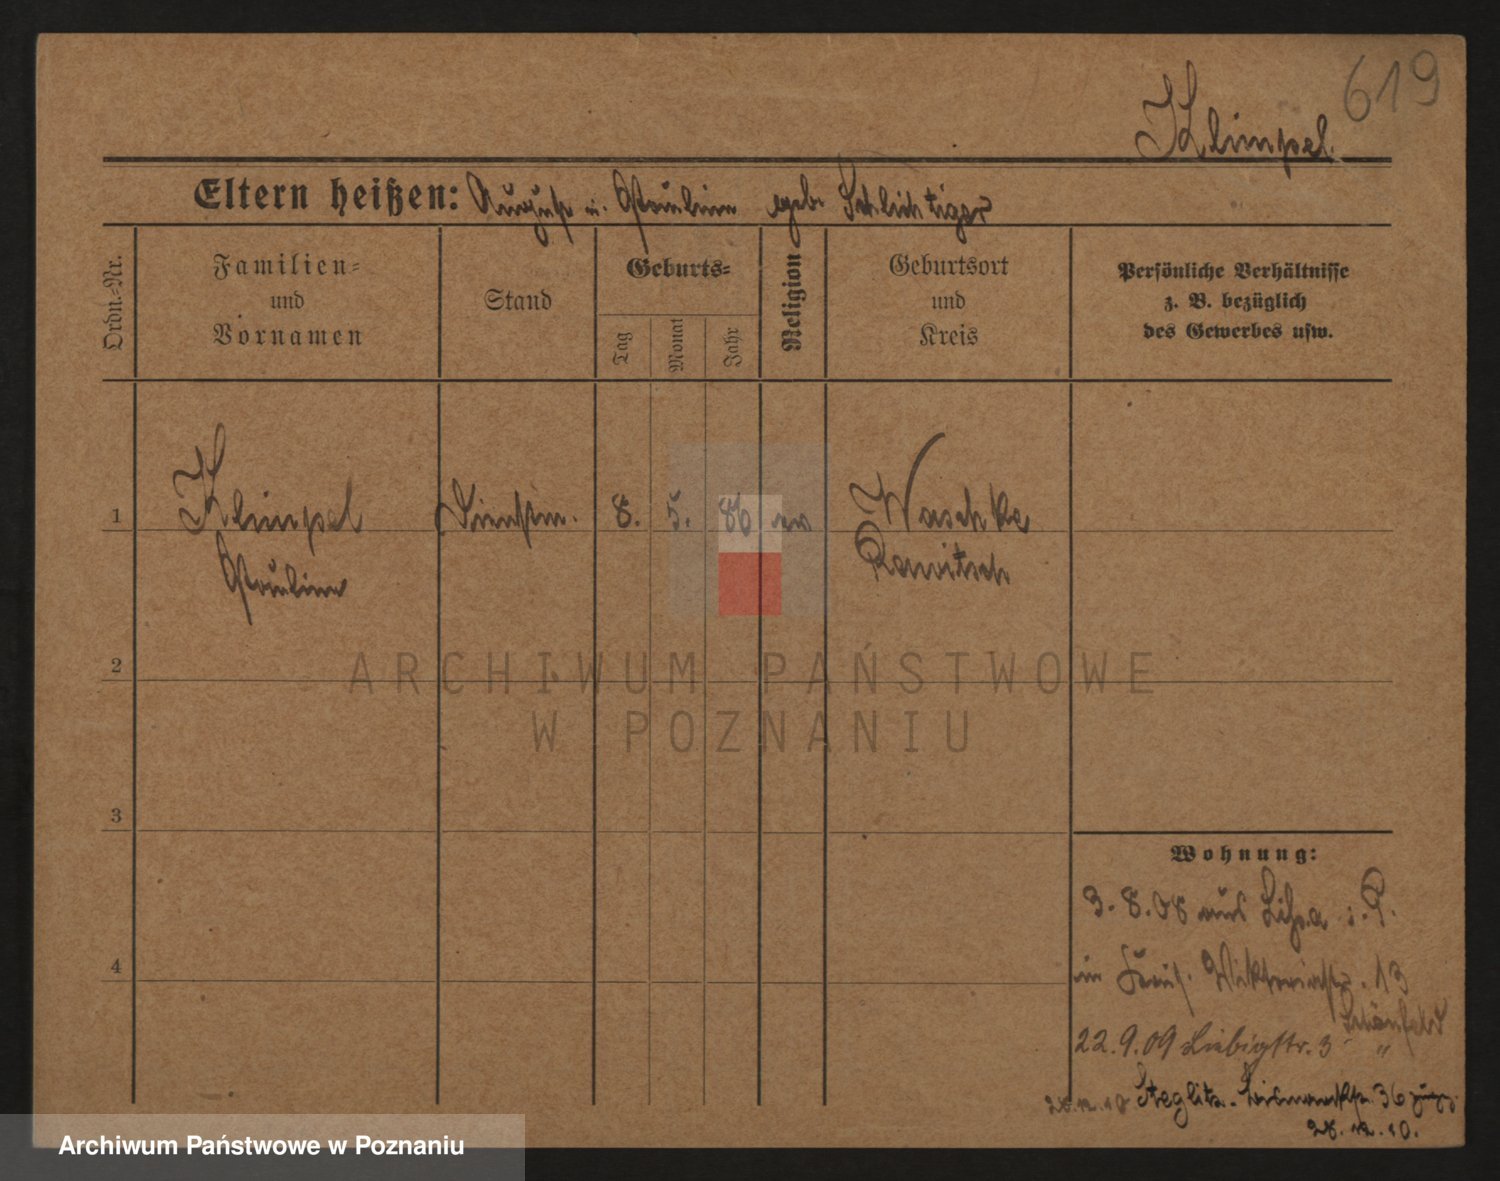 619
Klimpel
Eltern heißen: August u. Pauline geb. Schlichtiger
Ordn.-Nr.
Familien-
und
Vornamen
Stand
Geburts-
Tag
Monat
Jahr
Religion
Geburtsort
und
Kreis
Persönliche Verhältnisse
z. B. bezüglich
des Gewerbes usw.
1
Klimpel
Pauline
Dienstm.
8. 5. 86 ev
Waschke
Rawitsch
2
3
4
Wohnung:
3.8.08 aus Lissa i. P.
in Viktoriastr. 13
Schönfeld
22.9.09 Liebigstr. 3 "
28.12.10 Steglitz. Bismarckstr. 36
28.12.10.
ARCHIWUM PAŃSTWOWE
W POZNANIU
Archiwum Państwowe w Poznaniu